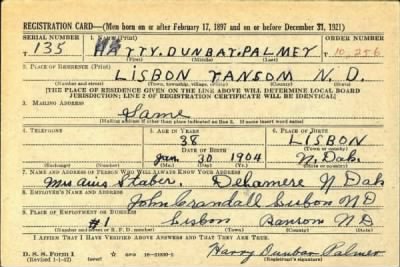 REGISTRATION CARD—(Men born on or after February 17, 1897 and on or before December 31, 1921)
SERIAL NUMBER 1. NAME (Print) ORDER NUMBER
135 HATTY. DUNBAY. PALMEY 10,256
(First) (Middle) (Last)
2. PLACE OF RESIDENCE (Print)
LISBON RANSOM N. D.
(Number and street) (Town, township, village, or city) (County) (State)
[THE PLACE OF RESIDENCE GIVEN ON THE LINE ABOVE WILL DETERMINE LOCAL BOARD
JURISDICTION; LINE 2 OF REGISTRATION CERTIFICATE WILL BE IDENTICAL]
3. MAILING ADDRESS
Same
[Mailing address if other than place indicated on line 2. If same insert word same]
4. TELEPHONE 5. AGE IN YEARS 6. PLACE OF BIRTH
38 LISBON
DATE OF BIRTH (Town or county)
Jan. 30 1904 N. Dak.
(Exchange) (Number) (Mo.) (Day) (Yr.) (State or country)
7. NAME AND ADDRESS OF PERSON WHO WILL ALWAYS KNOW YOUR ADDRESS
Mrs Staber. N Dak
8. EMPLOYER'S NAME AND ADDRESS
John Crandall Lisbon ND
9. PLACE OF EMPLOYMENT OR BUSINESS
#1 Lisbon Ransom ND
(Number and street or R. F. D. number) (Town) (County) (State)
I AFFIRM THAT I HAVE VERIFIED ABOVE ANSWERS AND THAT THEY ARE TRUE.
D. S. S. Form 1
(Revised 1-1-42) (over) Harry Dunbar Palmer
(Registrant's signature)